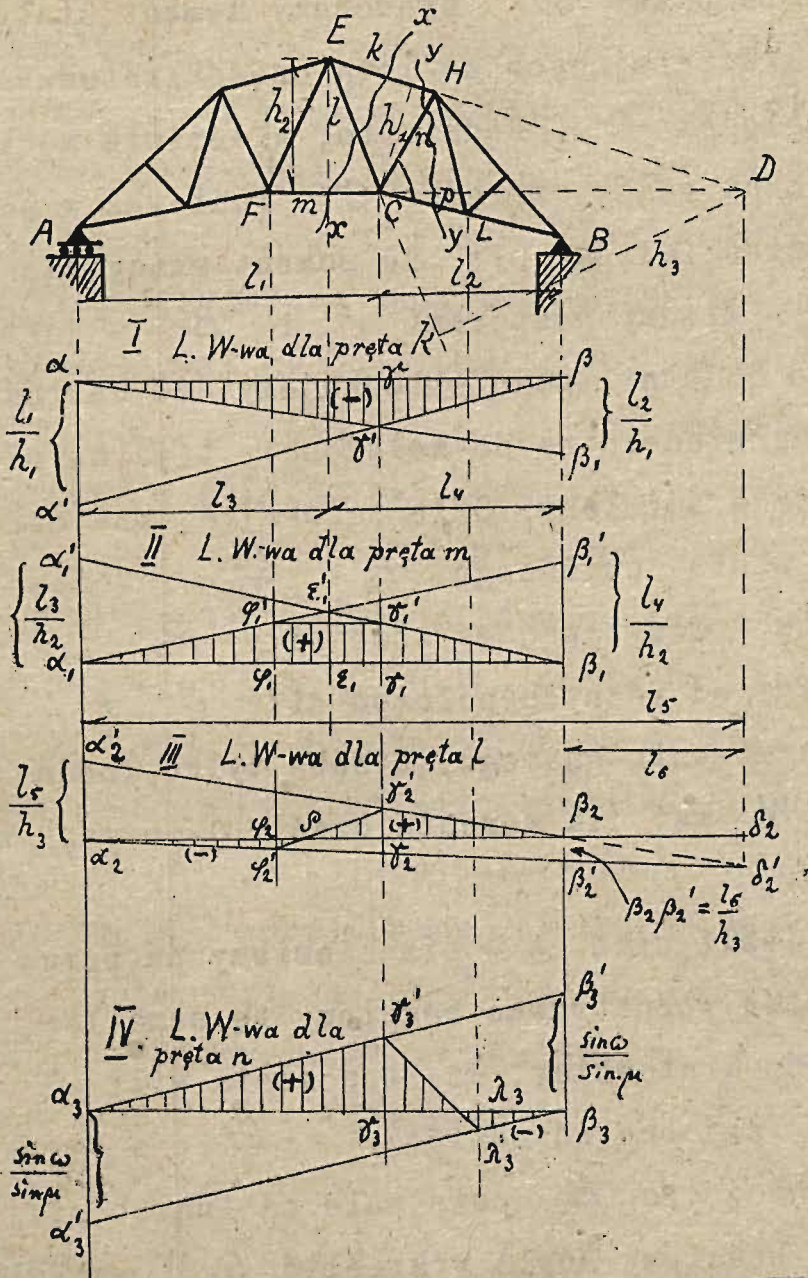 E
k
x
y
H
h₂
l
h₁
n
D
F
m
x
C
p
y
L
A
B
h₃
l₁
l₂
I L. W-wa dla pręta k
α
γ
β
l₁/h₁
(-)
l₂/h₁
γ'
β₁
α'
l₃
l₄
II L. W-wa dla pręta m
α₁'
β₁'
l₃/h₂
φ₁'
ε₁'
γ₁'
l₄/h₂
(+)
α₁
φ₁
ε₁
γ₁
β₁
l₅
l₆
III L. W-wa dla pręta l
α₂'
l₅/h₃
γ₂'
φ₂
ρ
(+)
β₂
δ₂
α₂
(-)
φ₂'
γ₂
β₂'
δ₂'
β₂β₂' = l₆/h₃
β₃'
γ₃'
IV. L. W-wa dla
pręta n
sin ω/sin μ
(+)
α₃
λ₃
γ₃
(-)
β₃
λ₃'
sin ω/sin μ
α₃'